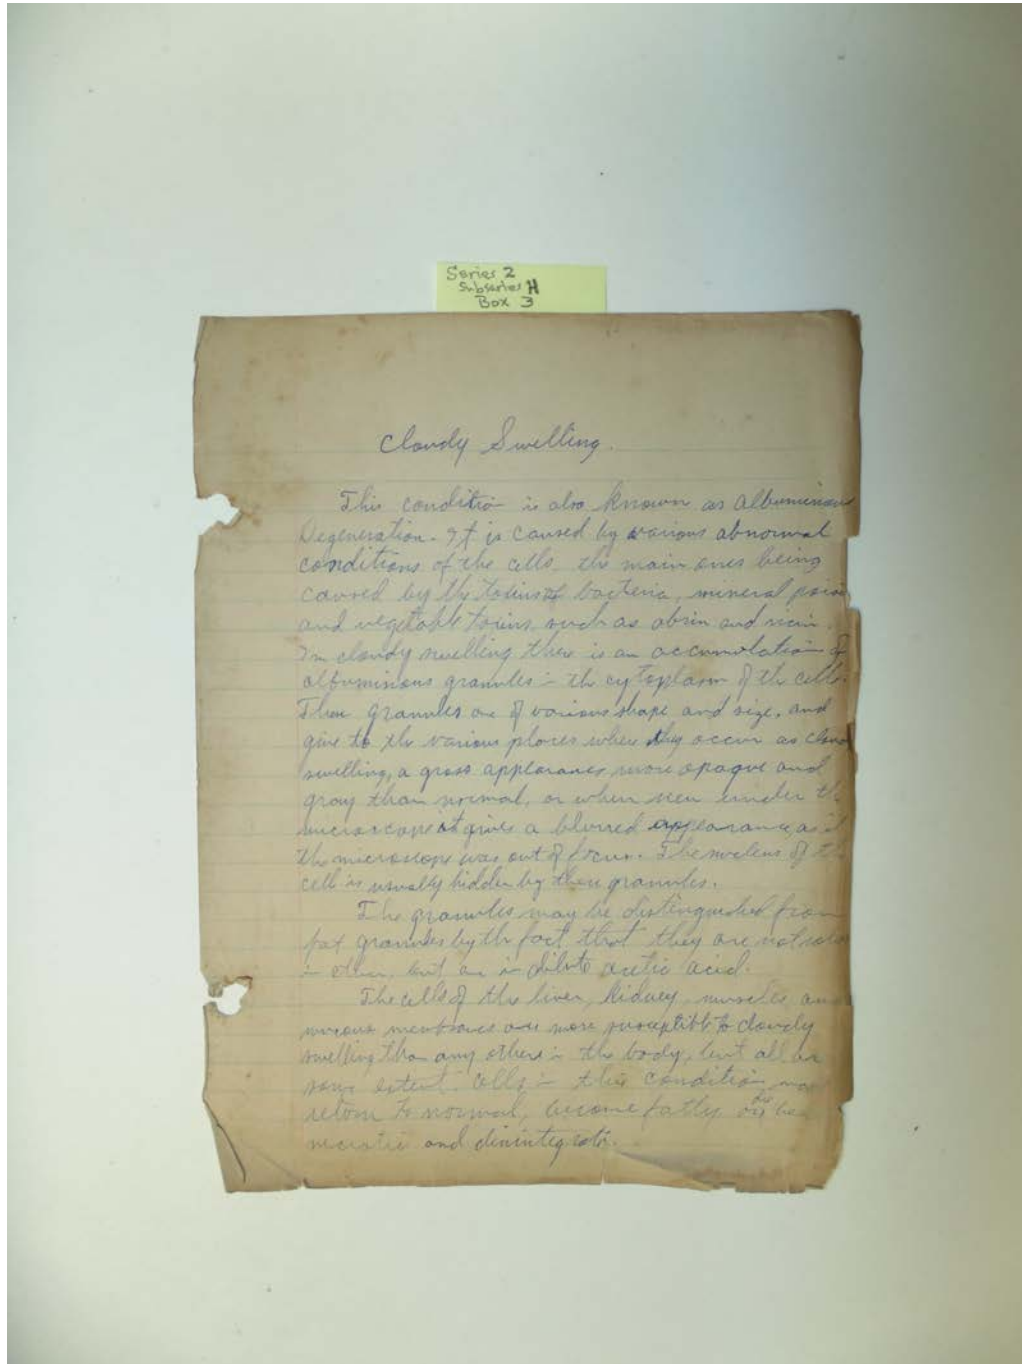 Series 2
Subseries H
Box 3
Cloudy Swelling.
This condition is also known as Albuminous
Degeneration. It is caused by various abnormal
conditions of the cells, the main ones being
caused by the toxins of bacteria, mineral
and vegetable toxins such as abrin and ricin.
In cloudy swelling there is an accumulation of
albuminous granules in the cytoplasm of the cells.
These granules are of various shape and size, and
give to the various places where they occur as
swelling, a gross appearance more opaque and
gray than normal, or when seen under
microscope it gives a blurred appearance, as
the microscope was out of focus. The nucleus of
cell is usually hidden by these granules.
The granules may be distinguished from
fat granules by the fact that they are not
in ether, but are in dilute acetic acid.
The cells of the liver, kidney, muscles
mucous membranes are more susceptible to cloudy
swelling than any others in the body, but all
some extent. Cells in this condition
return to normal, become fatty or
necrotic and disintegrate.